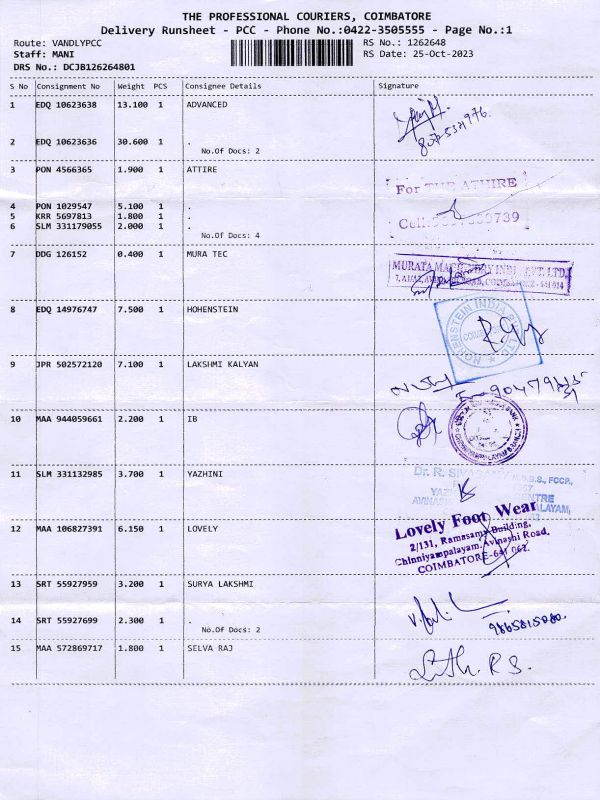 THE PROFESSIONAL COURIERS, COIMBATORE
Delivery Runsheet - PCC - Phone No.:0422-3505555 - Page No.:1
Route: VANDLYPCC RS No.: 1262648
Staff: MANI RS Date: 25-Oct-2023
DRS No.: DCJB126264801
S No Consignment No Weight PCS Consignee Details Signature
1 EDQ 10623638 13.100 1 ADVANCED
2 EDQ 10623636 30.600 1 .
No.Of Docs: 2
3 PON 4566365 1.900 1 ATTIRE
For THE ATHIRE
4 PON 1029547 5.100 1 .
5 KRR 5697813 1.800 1 .
6 SLM 331179055 2.000 1 .
Cell:
No.Of Docs: 4
7 DDG 126152 0.400 1 MURA TEC
MURATA MACHINERY INDIA PVT. LTD.
8 EDQ 14976747 7.500 1 HOHENSTEIN
HOHENSTEIN INDIA PVT. LTD.
9 JPR 502572120 7.100 1 LAKSHMI KALYAN
10 MAA 944059661 2.200 1 IB
11 SLM 331132985 3.700 1 YAZHINI
Dr. R.
12 MAA 106827391 6.150 1 LOVELY
Lovely Foot Wear
2/131, Ramasamy Building,
Chinniyampalayam, Avinashi Road,
COIMBATORE-641 062.
13 SRT 55927959 3.200 1 SURYA LAKSHMI
14 SRT 55927699 2.300 1 .
No.Of Docs: 2
15 MAA 572869717 1.800 1 SELVA RAJ